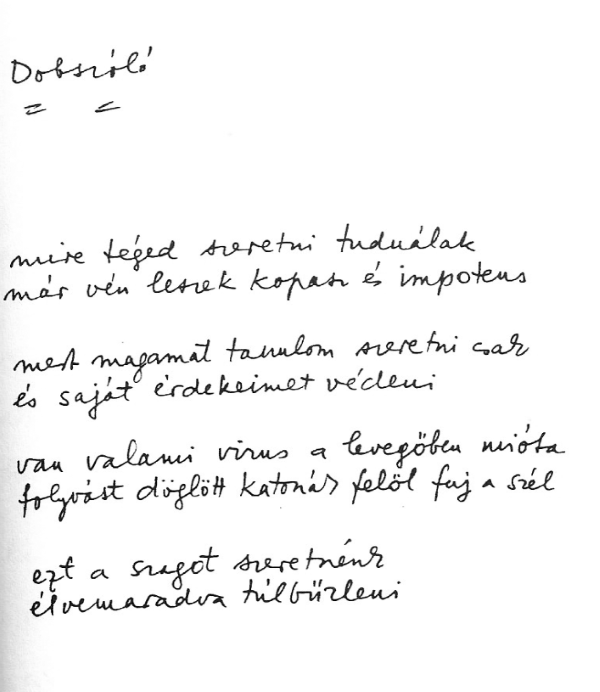 Dobszóló
mire téged szeretni tudnálak
már vén leszek kopasz és impotens
mert magamat tanulom szeretni csak
és saját érdekeimet védeni
van valami virus a levegőben mióta
folyvást döglött katonák felől fuj a szél
ezt a szagot szeretnénk
élvemaradva túlbűzleni